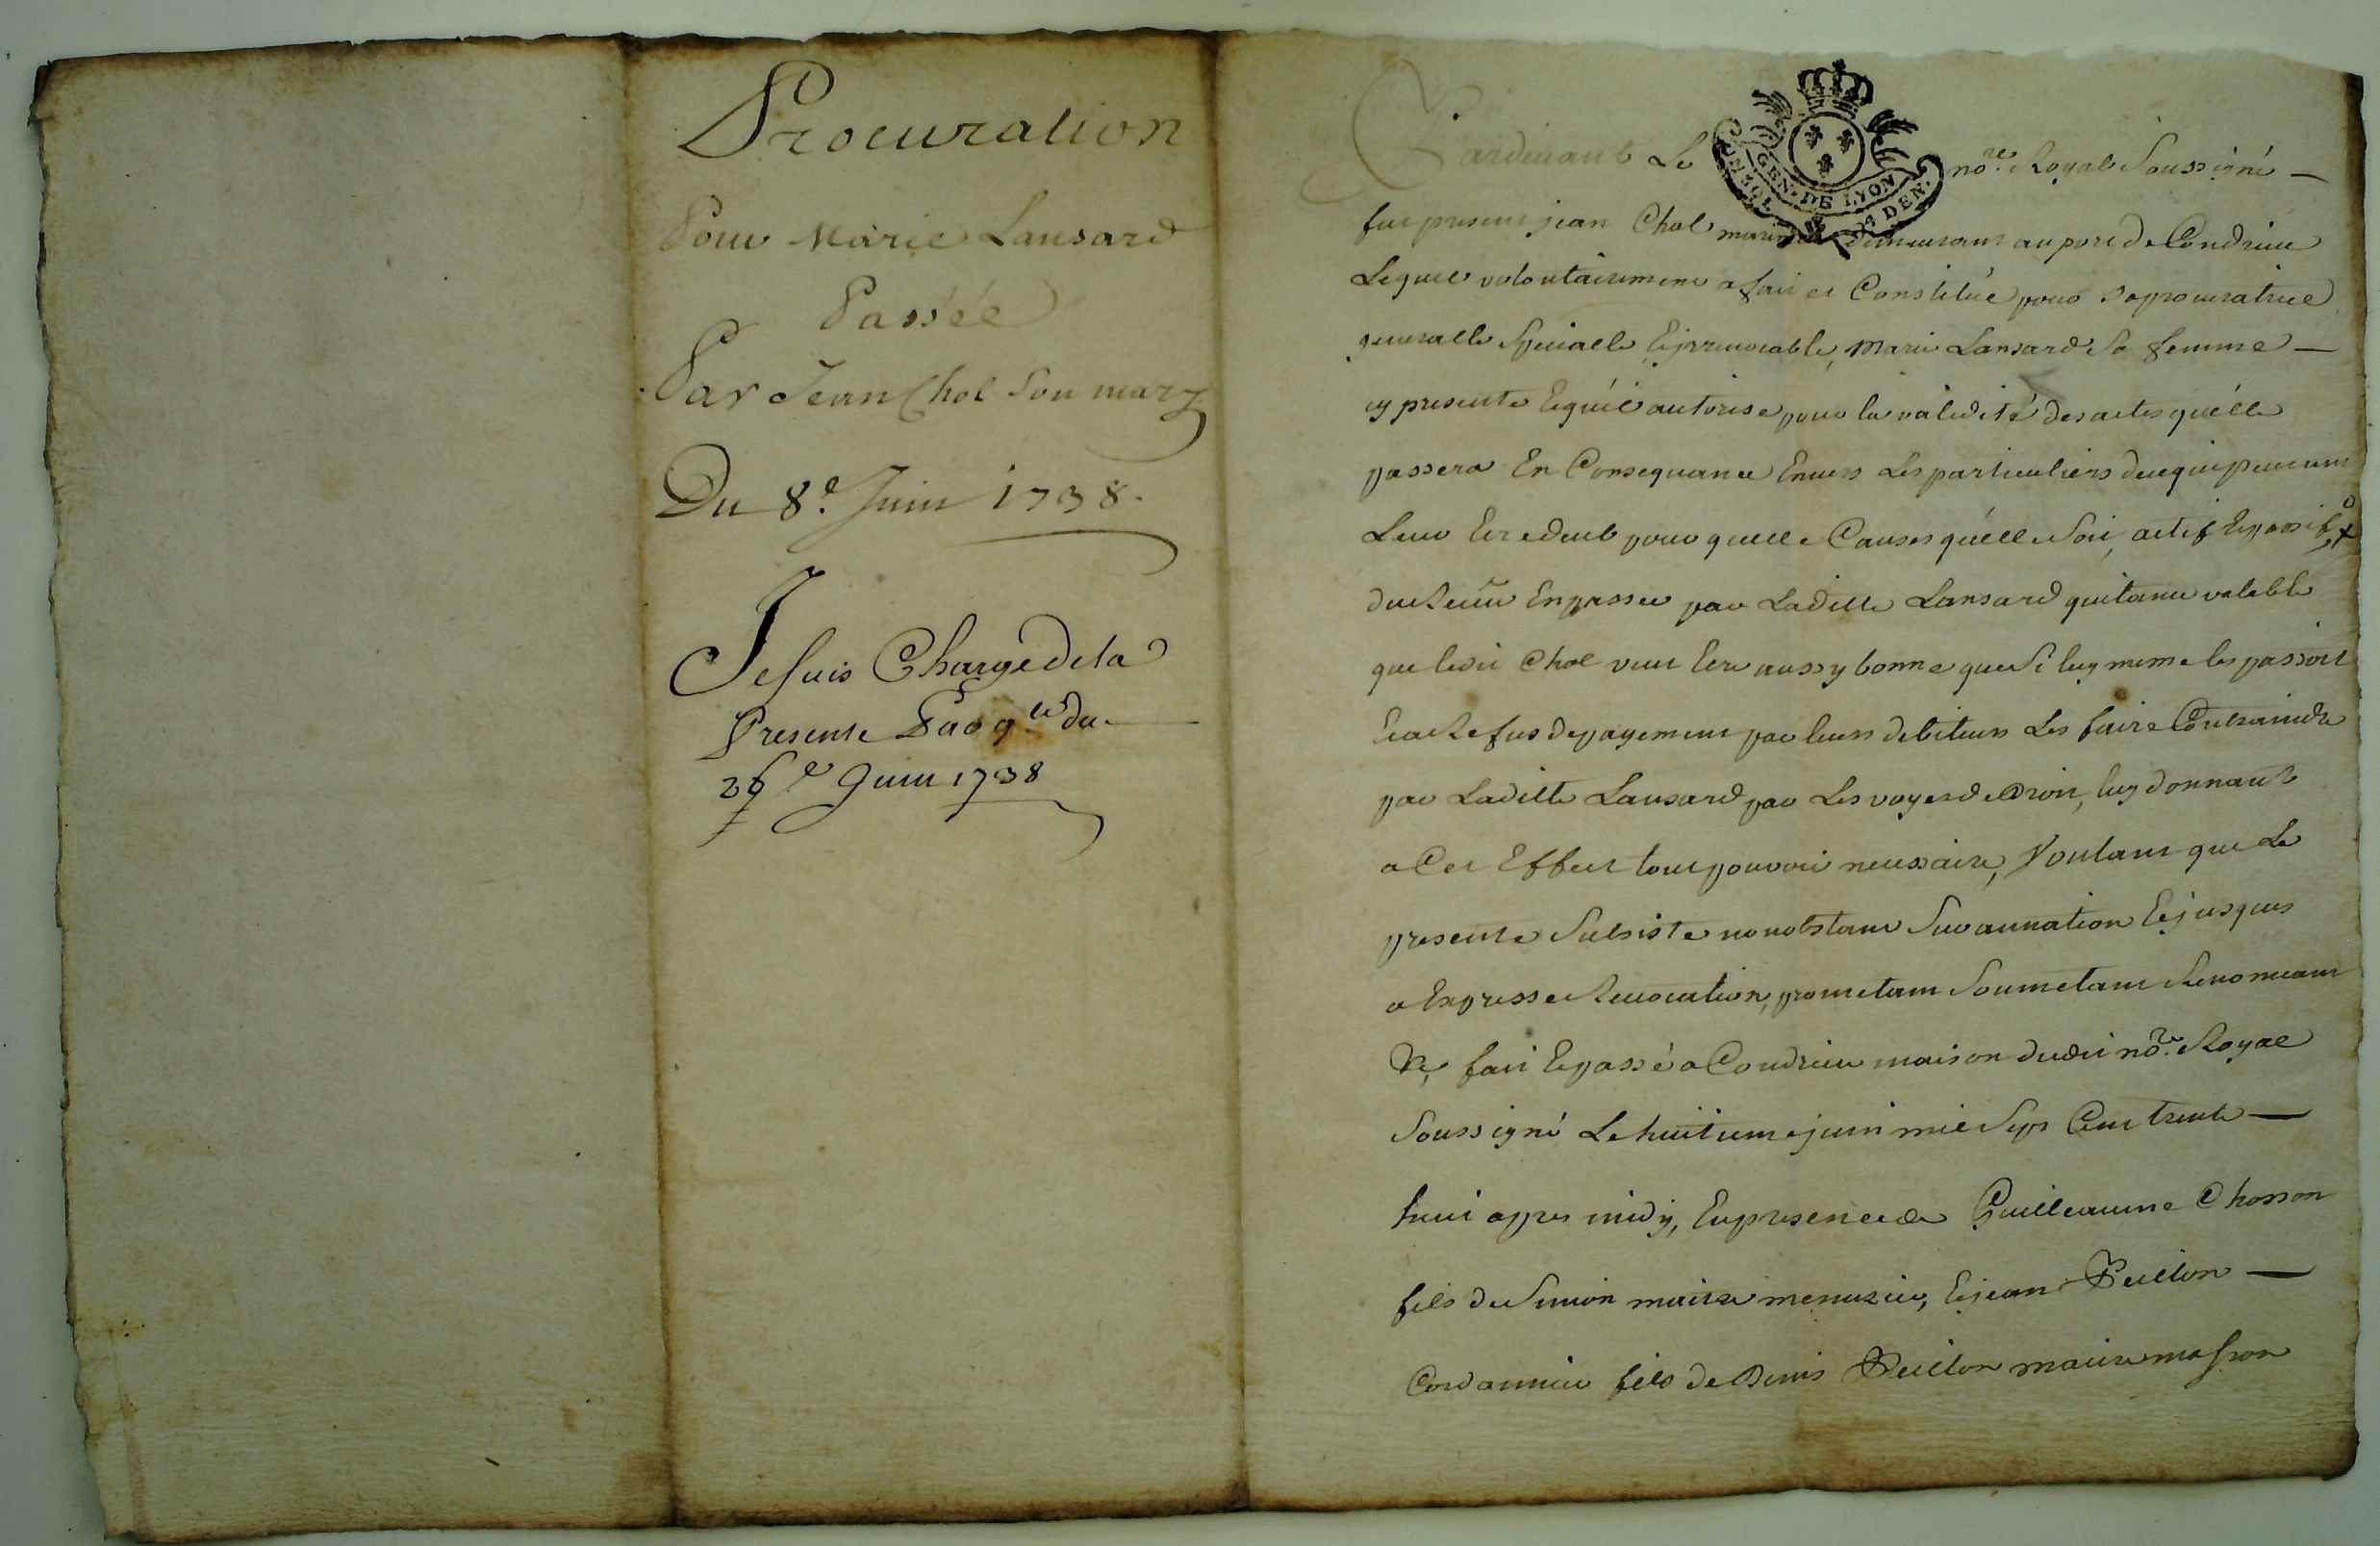 Procuration
Pour Marie Lansard
Passée
Par Jean Chol son mary
Du 8.e Juin 1738.
Je suis Chargé de la
presente
Juin 1738
GEN. DE LYON
DEN.
Pardevant Le no.re Royal Soussigné
fut present jean Chol demeurant au port de Condrieu
Lequel volontairement a fait et Constitué pour sa procuratrice
generalle Specialle Et irrevocable, Marie Lansard Sa femme
cy presente Et qu'il autorise pour la validité des actes qu'elle
passera En Consequance Envers Les particuliers
pour quelle Causes qu'elle soit, actif Et passif
En passer par Laditte Lansard quitance valable
que ledit Chol veut Etre aussy bonne que Si luy meme les passoit
Et a Refus de payement par leurs debiteurs Les faire Contraindre
par Laditte Lansard par Les voyes de Droit, luy donnant
a Cet Effect tout pouvoir necessaire, Voulant que La
presente Subsiste nonobstant Surannation Et jusques
a Expresse Revocation, prometant Soumetant Renonceant
fait Et passé a Condrieu maison dudit no.re Royal
Soussigné Le huitieme juin mil Sept Cent trente
huit apres midy, En presence de Guilleaume Chosson
fils de Simon maitre menuzier, Et jean
Cordannier fils de Denis maitre masson